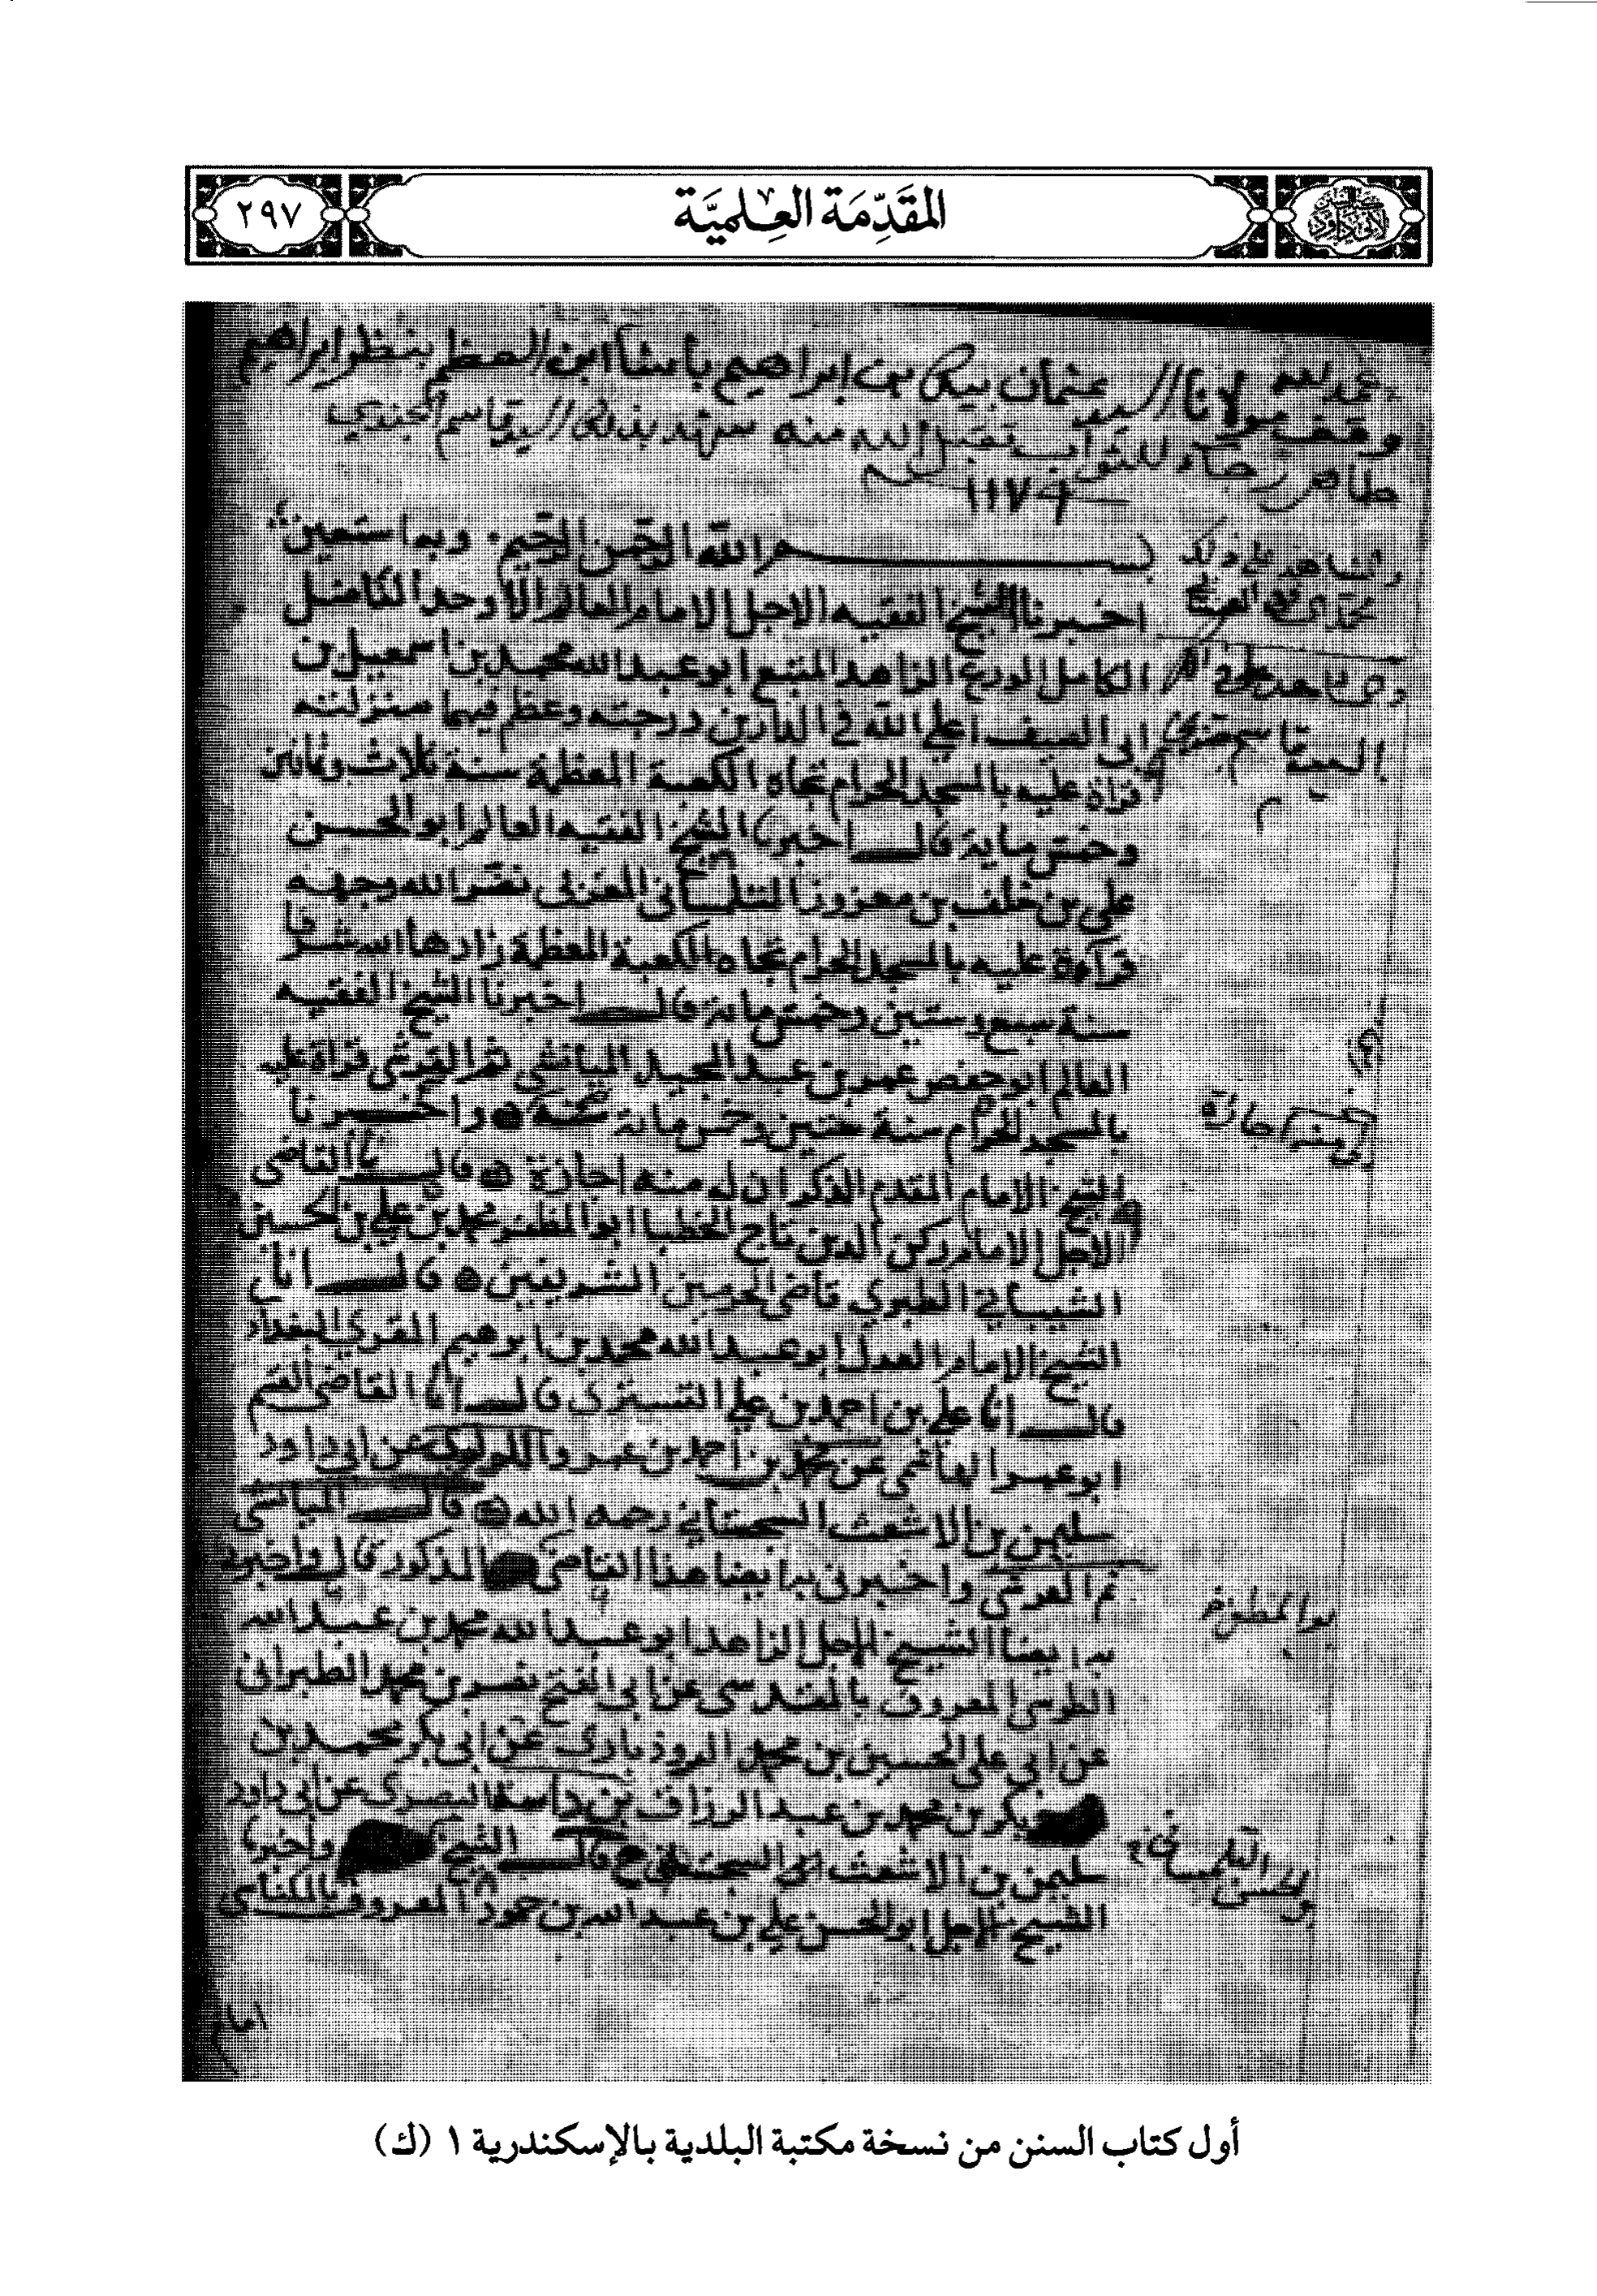 السنن لأبي داود
المقَدِّمَة العِلميَّة
٢٩٧
وقف مولانا السيد عثمان بيك بن ابراهيم باشا ابن العظم بنظر ابراهيم
طاهر رجاء للثواب تقبل الله منه شهد بذلك السيد قاسم الجندي
١١٧٩
بسم الله الرحمن الرحيم. وبه استعين
اخبرنا الشيخ الفقيه الاجل الامام العالم الاوحد الفاضل
الكامل الورع الزاهد المتبع ابو عبد الله محمد بن اسمعيل بن
ابى الصيف اعلى الله في الدارين درجته وعظم فيهما منزلته
قراة عليه بالمسجد الحرام تجاه الكعبة المعظمة سنة ثلاث وثمانين
وخمس ماية قال اخبرنا الشيخ الفقيه العالم ابو الحسن
على بن خلف بن معزوز التلمسانى نضر الله وجهه
قراءة عليه بالمسجد الحرام تجاه الكعبة المعظمة زادها الله شرفا
سنة سبع وستين وخمس ماية قال اخبرنا الشيخ الفقيه
العالم ابو حفص عمر بن عبد المجيد الميانشي ثم القرشي قراة عليه
بالمسجد الحرام سنة وخمس ماية واخبرنا
الشيخ الامام المقدم الذكر ان له منه اجازة قال نا القاضى
الاجل الامام ركن الدين تاج الخطبا ابو المظفر محمد بن علي بن الحسين
الشيباني الطبري قاضى الحرمين الشريفين قال انا
الشيخ الامام العدل ابو عبد الله محمد بن ابرهيم المقري البغداد
قال انا على بن احمد بن علي التستري قال انا القاضى
ابو عمر الهاشمي عن محمد بن احمد بن عمرو اللولوى عن ابى داود
سليمن بن الاشعث السجستاني رحمه الله قال الميانشى
ثم القرشي واخبرنى به ايضا هذا القاضى المذكور قال واخبرنا
به ايضا الشيخ الاجل الزاهد ابو عبد الله محمد بن عبد الله
الطوسى المعروف بالمقدسى عن ابي الفتح نصر بن محمد الطبرانى
عن ابي على الحسين بن محمد الروذبارى عن ابى بكر محمد بن
بكر بن محمد بن عبد الرزاق بن داسة البصرى عن ابى داود
سليمن بن الاشعث السجستانى قال الشيخ واخبرنا
الشيخ الاجل ابو الحسن على بن عبد الله بن حمود المعروف بالمكناسى
امام
أول كتاب السنن من نسخة مكتبة البلدية بالإسكندرية ١ (ك)